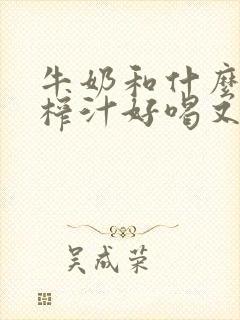 牛奶和什麽
榨汁好喝又
吴成荣